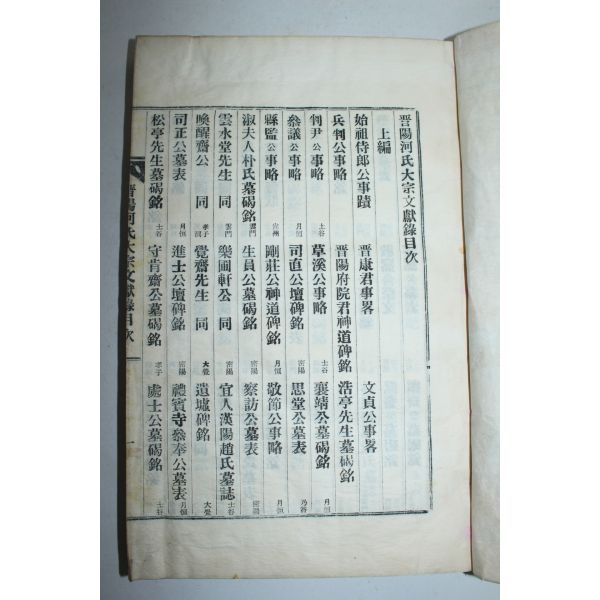 晋陽河氏大宗文獻錄目次
上編
始祖侍郎公事蹟 晋康君事畧 文貞公事畧
兵判公事略 晋陽府院君神道碑銘 浩亭先生墓碣銘
判尹公事略 士谷 草溪公事略 士谷 襄靖公墓碣銘
叅議公事略 月恒 司直公壇碑銘 思堂公墓表 乃谷
縣監公事略 剛莊公神道碑銘 月恒 敬節公事略 月恒
淑夫人朴氏墓碣銘 雲門 生員公墓碣銘 密陽 察訪公墓表 密陽
雲水堂先生 同 雲門 樂圃軒公 同 密陽 宜人漢陽趙氏墓誌 士谷
喚醒齋公 同 覺齋先生 同 大覺 遺墟碑銘 大覺
司正公墓表 月恒 進士公壇碑銘 密陽 禮賓寺叅奉公墓表 月恒
松亭先生墓碣銘 士谷 守肯齋公墓碣銘 孝子 處士公墓碣銘 士谷
晋陽河氏大宗文獻錄目次 一